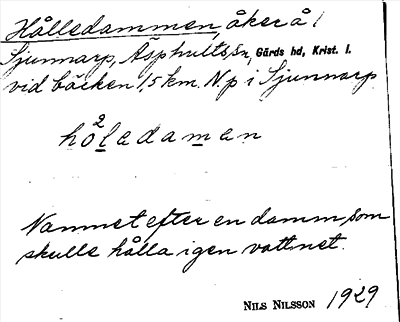 Hålledammen, åker å 1
Sjunnarp, Äsphults sn, Gärds hd, Krist. l.
vid bäcken 1,5 km. N. p i Sjunnarp
2
holadaman
Namnet efter en damm, som
skulle hålla igen vattnet.
NILS NILSSON 1929